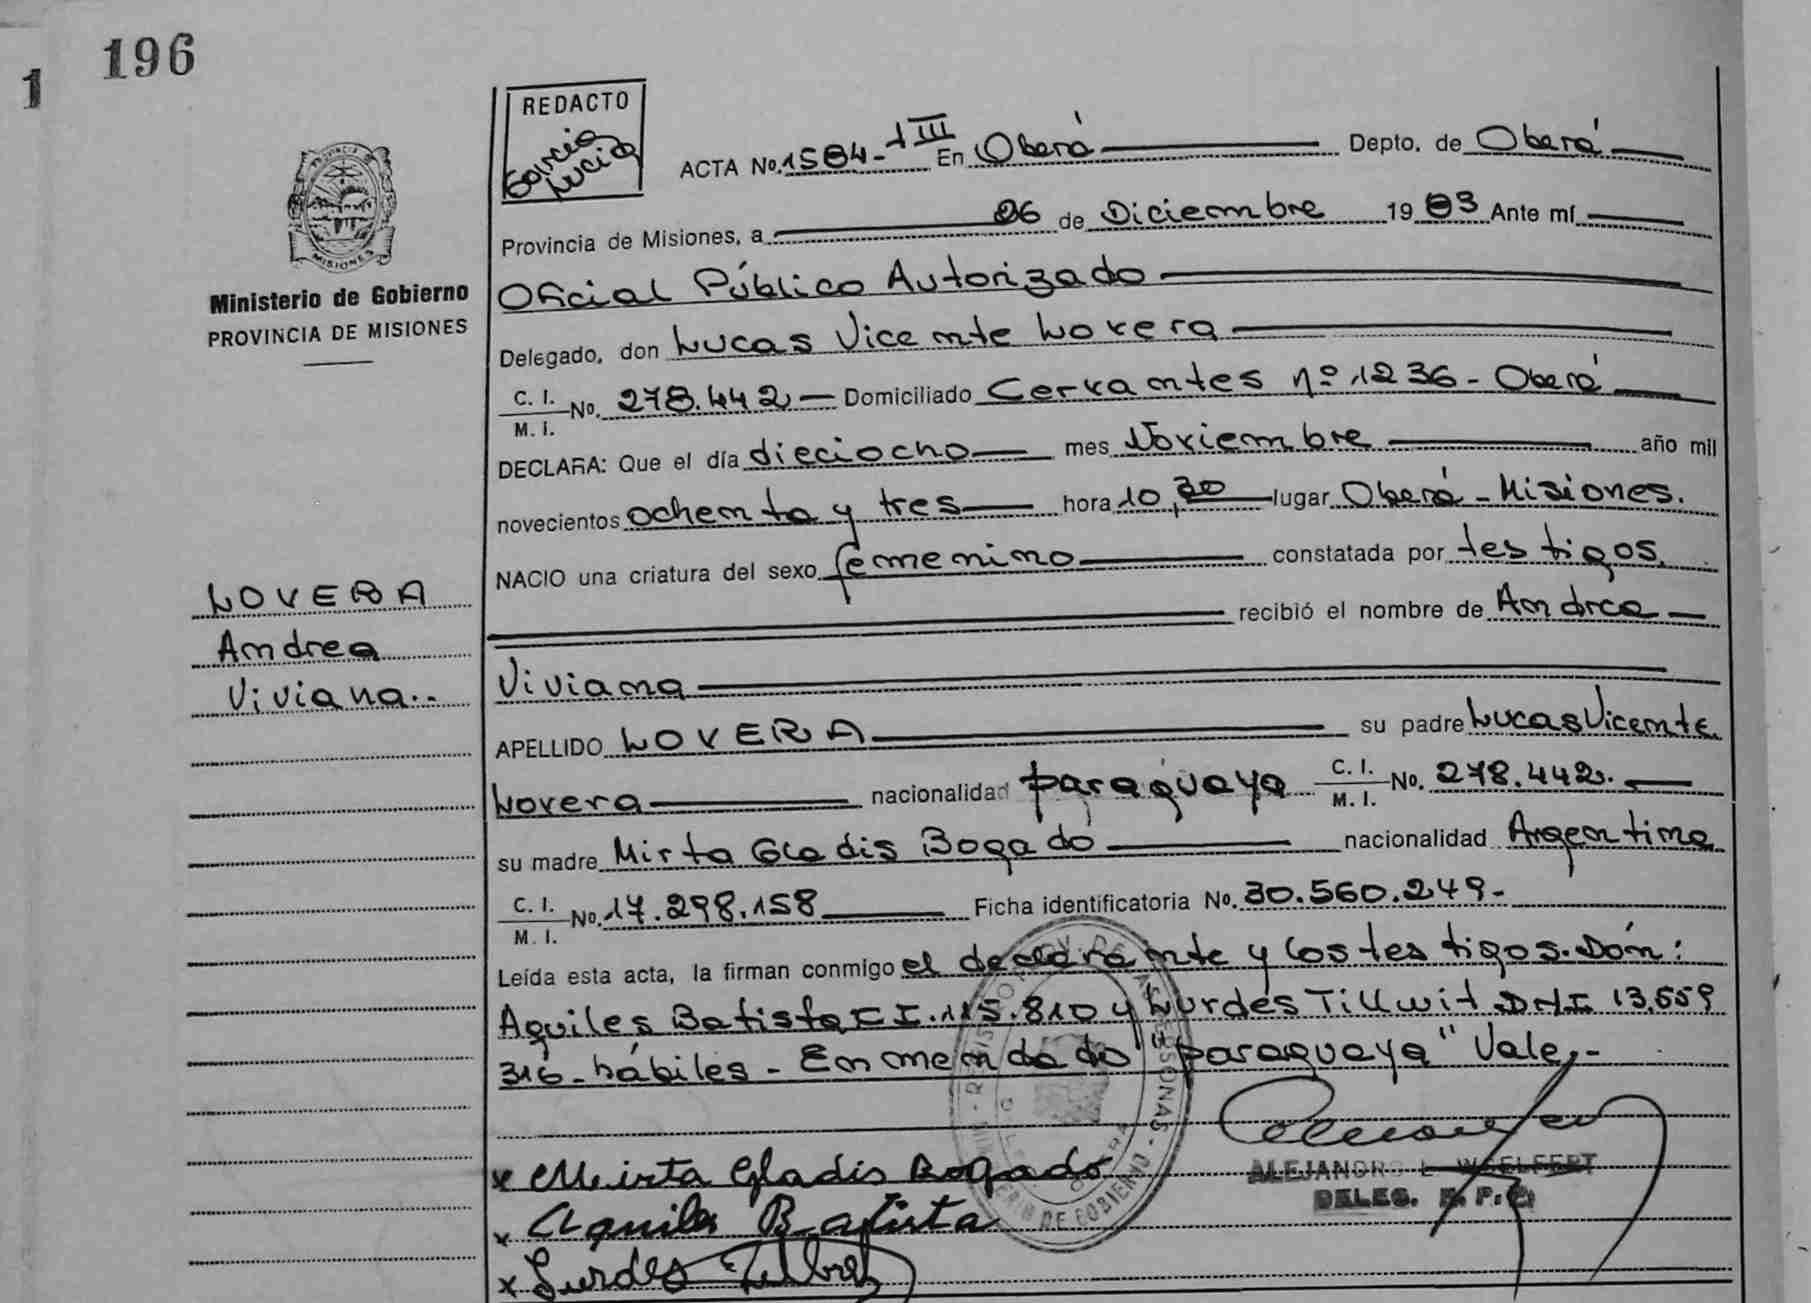 196
1
REDACTO
Garcia
Lucia
ACTA No. 1584-1III En Oberá Depto. de Oberá
Provincia de Misiones, a 06 de Diciembre 19 83 Ante mí
Oficial Público Autorizado
MISIONES
Ministerio de Gobierno
PROVINCIA DE MISIONES
Delegado, don Lucas Vicente Lovera
C. I. M. I. No. 278.442 Domiciliado Cervantes nº 1236 - Oberá
DECLARA: Que el día dieciocho mes Noviembre año mil
novecientos ochenta y tres hora 10,30 lugar Oberá - Misiones.
NACIO una criatura del sexo femenino constatada por testigos.
recibió el nombre de Andrea
Viviana
LOVERA
Andrea
Viviana..
APELLIDO LOVERA su padre Lucas Vicente
Lovera nacionalidad paraguaya C. I. M. I. No. 278.442.
su madre Mirta Gladis Bogado nacionalidad Argentina
C. I. M. I. No. 17.298.158 Ficha identificatoria No. 30.560.249-
Leída esta acta, la firman conmigo el declarante y los testigos. Don:
Aquiles Batista C I. 115.810 y Lurdes Tillwit D.N.I 13.659
316- hábiles - Enmendado "paraguaya" Vale.-
x Mirta Gladis Bogado
x Aquiles Batista
x Lurdes
ALEJANDRO L.
DELEG.
DE GOBIERNO